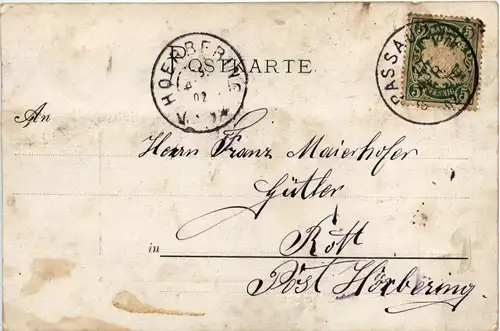 POSTKARTE.
HOERBERING
02
PASSAU
5 5
An
Herrn Franz Maierhofer
Gütler
in Rott
Post Hörbering.